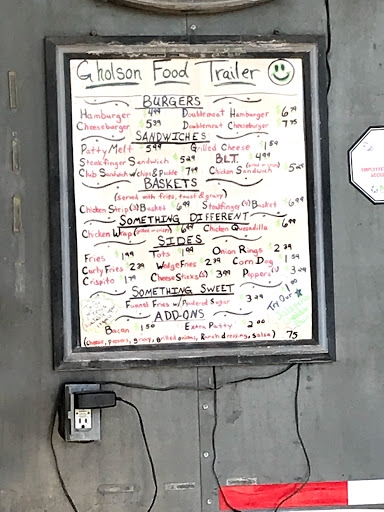 Gholson Food Trailer
BURGERS
Hamburger $4.99 Doublemeat Hamburger $6.79
Cheeseburger $5.39 Doublemeat Cheeseburger $7.75
SANDWICHES
Patty Melt $5.99 Grilled Cheese $1.59
Steakfinger Sandwich $5.29 B.L.T. $4.99
Club Sandwich w/chips & pickle $7.99 Chicken Sandwich
BASKETS
(served with fries, toast & gravy)
Chicken Strip Basket $6.99 Steakfingers Basket $6.99
SOMETHING DIFFERENT
Chicken Wrap $6.99 Chicken Quesadilla $6.99
SIDES
Fries $1.99 Tots $1.99 Onion Rings $2.39
Curly Fries 2.39 Wedge Fries 2.39 Corn Dog 1.59
Crispito 1.79 Cheese Sticks 3.99 Peppers 3.29
SOMETHING SWEET
Funnel Fries w/ Powdered Sugar 3.29
Try Our
ADD-ONS
Bacon $1.50 Extra Patty 2.00
(cheese, peppers, gravy, grilled onions, Ranch dressing, salsa) .75